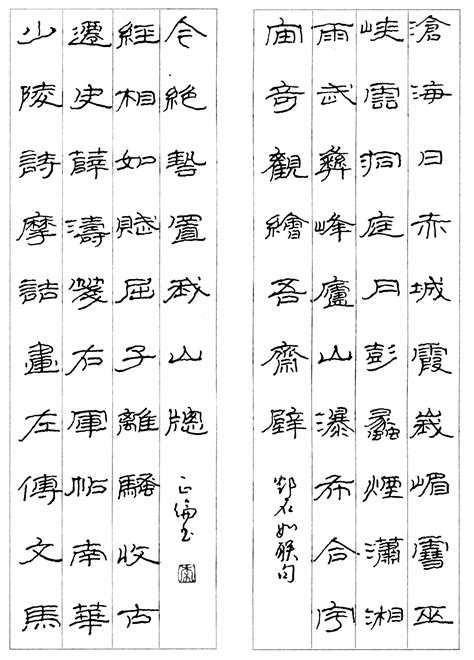 滄海日赤城霞峩嵋雪巫
峽雲洞庭月彭蠡煙瀟湘
雨武彝峰廬山瀑布合宇
宙奇觀繪吾齋壁
鄧石如联句
少陵詩摩詰畫左傳文馬
遷史薛濤箋右軍帖南華
經相如賦屈子離騷收古
今絕藝置我山牕
正倫书